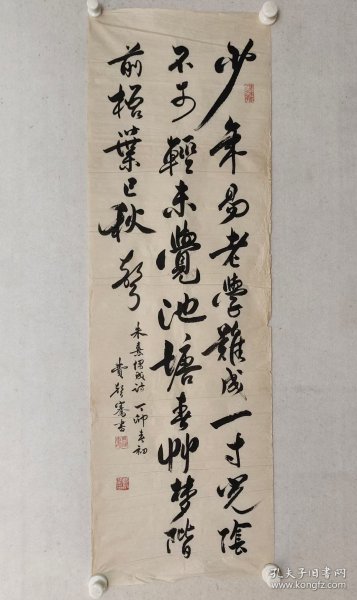 少年易老學難成一寸光陰
不可輕未覺池塘春艸夢階
前梧葉已秋聲
朱熹偶成詩 丁卯春初
書
孔夫子旧书网
www.kongfz.com